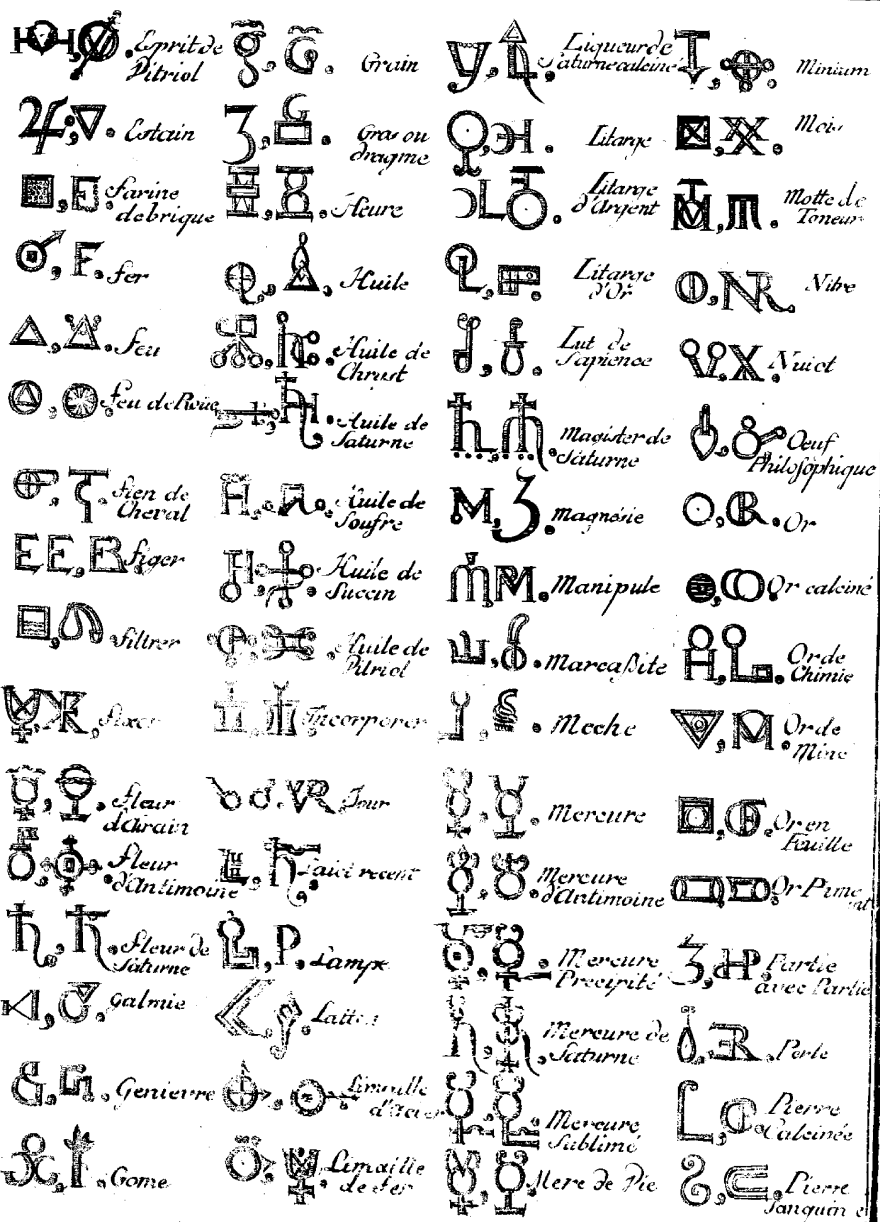 Esprit de
Vitriol
Estain
farine
de brique
fer
feu
feu de Roüe
fien de
Cheval
figer
filtrer
fixer
fleur
d'Airain
fleur
d'Antimoine
fleur de
Saturne
galmie
Genievre
Gome
Grain
Gras ou
dragme
Heure
Huile
Huile de
Christ
Huile de
Saturne
Huile de
Soufre
Huile de
Succin
Huile de
Vitriol
Incorporer
Jour
Laict recent
Lampe
Latton
Limaille
d'Acier
Limaille
de fer
Liqueur de
Saturne calciné
Litarge
Litarge
d'Argent
Litarge
d'Or
Lut de
Sapience
Magister de
Saturne
Magnésie
Manipule
Marcaßite
Meche
Mercure
Mercure
d'Antimoine
Mercure
Precipité
Mercure de
Saturne
Mercure
Sublimé
Mere de Vie
Minium
Mois
Motte de
Taneur
Nitre
Nuict
Oeuf
Philosophique
Or
Or calciné
Or de
Chimie
Or de
Mine
Or en
Feuille
Or Piment
Partie
avec Partie
Perle
Pierre
Calcinée
Pierre